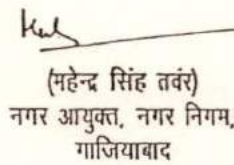 (महेन्द्र सिंह तवंर)
नगर आयुक्त, नगर निगम,
गाजियाबाद